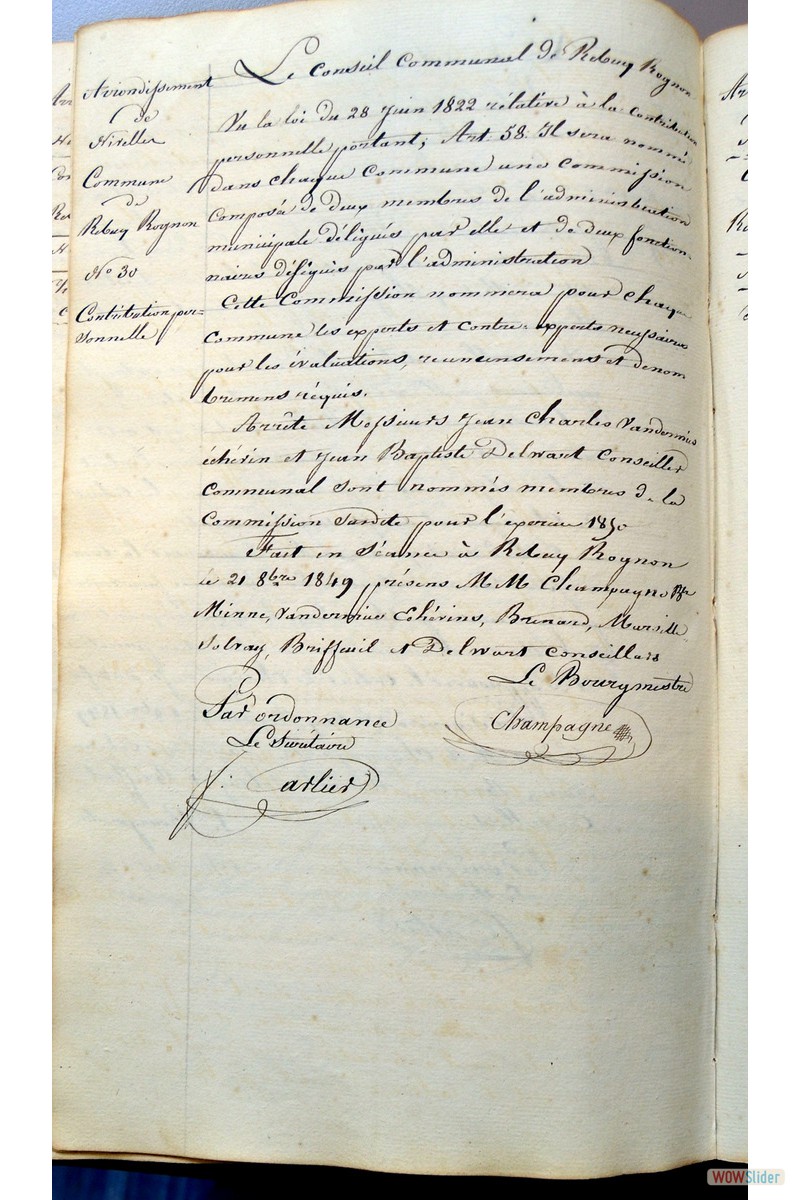 Arrondissement
de
Nivelles
Commune
de
Rebecq Rognon
No 30
Contribution per-
sonnelle
Le Conseil Communal de Rebecq Rognon
Vu la loi du 28 Juin 1822 rélative à la Contribution
personnelle portant; Art 58. Il sera nommé
dans chaque Commune une Commission
Composée de deux membres de l'administration
municipale délégués par elle et de deux fonction-
naires désignés par l'administration
Cette Commission nommera pour chaque
Commune les experts et contre-experts nécessaires
pour les évaluations, recensemens et denom-
bremens réquis.
Arrête Messieurs Jean Charles Vandernius
échévin et Jean Baptiste Delwart Conseiller
Communal sont nommés membres de la
Commission susdite pour l'exercice 1850
Fait en Séance à Rebecq Rognon
le 21 8bre 1849 présens MM Champagne Bre
Minne, Vandernius Echévins, Brenard,
Solvay, Briffeuil et Delwart Conseillers
Le Bourgmestre
Champagne
Par ordonnance
Le Secrétaire
arlier
WOWSlider